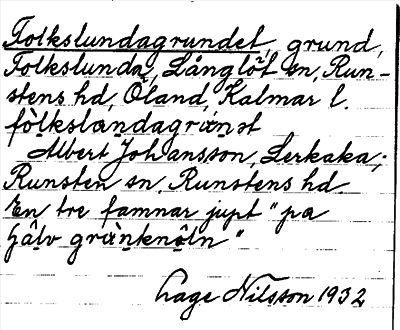 Folkslundagrundet, grund,
Folkslunda, Långlöt sn, Run-
stens hd, Öland, Kalmar l.
fòlkslandagrànst
Albert Johansson, Lerkaka;
Runsten sn. Runstens hd.
En tre famnar jupt "pa
hjâlv grànknôln"
Lage Nilsson 1932